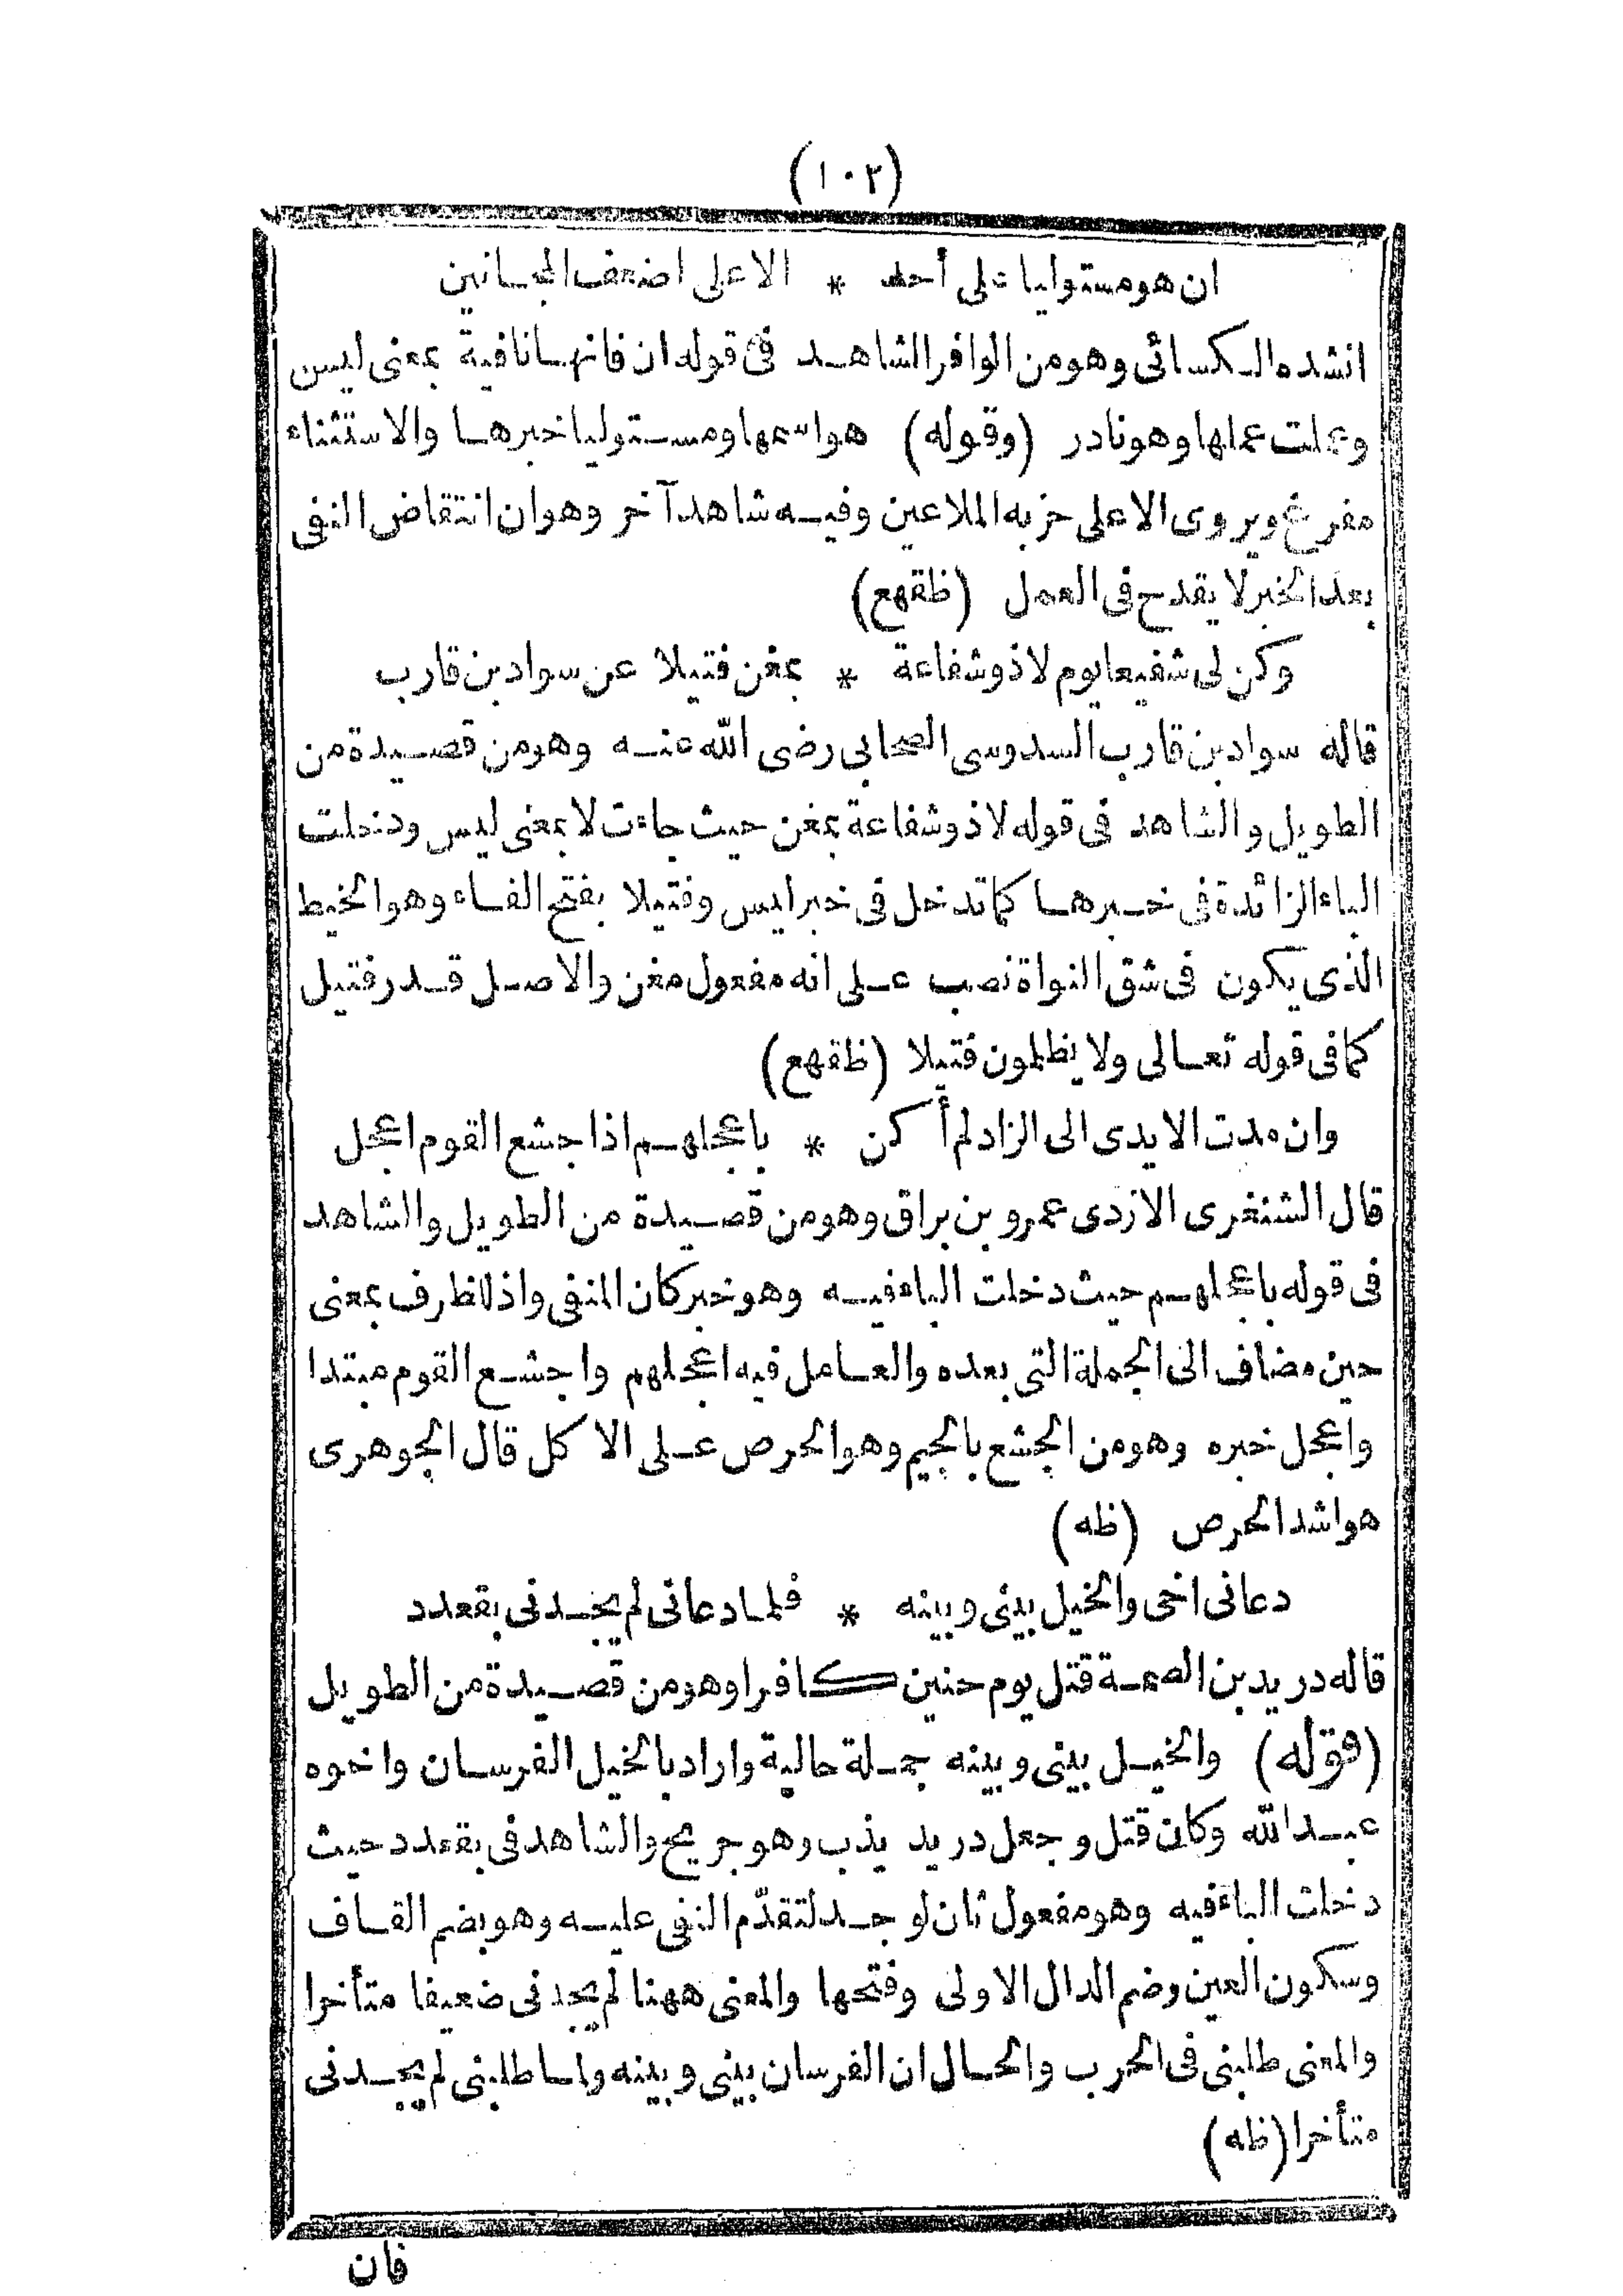 (١٠٢)
ان هو مستوليا على أحد * الا على اضعف المجانين
انشده الكسائى وهو من الوافر الشاهد فى قوله ان فانها نافية بمعنى ليس
وعملت عملها وهو نادر (وقوله) هو اسمها ومستوليا خبرها والاستثناء
مفرغ ويروى الا على حزبه الملاعين وفيه شاهد آخر وهو ان انتقاض النفى
بعد الخبر لا يقدح فى العمل (ظقهع)
وكن لى شفيعا يوم لا ذو شفاعة * بمغن فتيلا عن سواد بن قارب
قاله سواد بن قارب السدوسى الصحابى رضى الله عنه وهو من قصيدة من
الطويل والشاهد فى قوله لا ذو شفاعة بمغن حيث جاءت لا بمعنى ليس ودخلت
الباء الزائدة فى خبرها كما تدخل فى خبر ليس وفتيلا بفتح الفاء وهو الخيط
الذى يكون فى شق النواة نصب على انه مفعول مغن والاصل قدر فتيل
كما فى قوله تعالى ولا يظلمون فتيلا (ظقهع)
وان مدت الايدى الى الزاد لم أكن * باعجلهم اذا جشع القوم اعجل
قال الشنغرى الازدى عمرو بن براق وهو من قصيدة من الطويل والشاهد
فى قوله باعجلهم حيث دخلت الباء فيه وهو خبر كان المنفى واذ للظرف بمعنى
حين مضاف الى الجملة التى بعده والعامل فيه اعجلهم واجشع القوم مبتدا
واعجل خبره وهو من الجشع بالجيم وهو الحرص على الاكل قال الجوهرى
هو اشد الحرص (ظه)
دعانى اخى والخيل بينى وبينه * فلما دعانى لم يجدنى بقعدد
قاله دريد بن الصمة قتل يوم حنين كافرا وهو من قصيدة من الطويل
(قوله) والخيل بينى وبينه جملة حالية واراد بالخيل الفرسان واخوه
عبد الله وكان قتل وجعل دريد يذب وهو جريح والشاهد فى بقعدد حيث
دخلت الباء فيه وهو مفعول ثان لوجد لتقدّم النفى عليه وهو بضم القاف
وسكون العين وضم الدال الاولى وفتحها والمعنى ههنا لم يجدنى ضعيفا متأخرا
والمعنى طلبنى فى الحرب والحال ان الفرسان بينى وبينه ولما طلبنى لم يجدنى
متأخرا (ظه)
فان